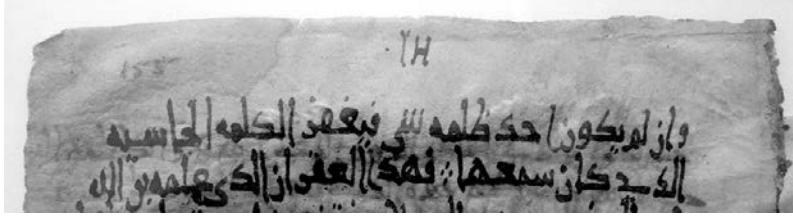 ΙΗ
وان لم يكون احد ظلمه شي فيغفر الكلمه الجاسيه
الذي كان سمعها فهذا الغفران الذي علمه بن الله